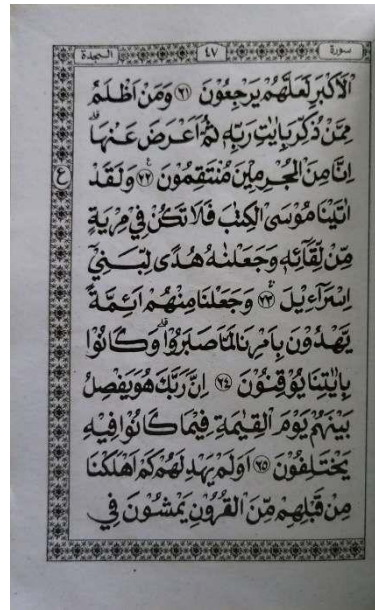 سورة ٤٧ السجدة
الْاَكْبَرِ لَعَلَّهُمْ يَرْجِعُوْنَ ﴿٢١﴾ وَمَنْ اَظْلَمُ
مِمَّنْ ذُكِّرَ بِاٰيٰتِ رَبِّهٖ ثُمَّ اَعْرَضَ عَنْهَا ؕ
اِنَّا مِنَ الْمُجْرِمِيْنَ مُنْتَقِمُوْنَ ﴿٢٢﴾ وَلَقَدْ
ع
اٰتَيْنَا مُوْسَى الْكِتٰبَ فَلَا تَكُنْ فِيْ مِرْيَةٍ
مِّنْ لِّقَآئِهٖ وَجَعَلْنٰهُ هُدًى لِّبَنِيْٓ
اِسْرَآءِيْلَ ﴿٢٣﴾ وَجَعَلْنَا مِنْهُمْ اَئِمَّةً
يَّهْدُوْنَ بِاَمْرِنَا لَمَّا صَبَرُوْا وَكَانُوْا
بِاٰيٰتِنَا يُوْقِنُوْنَ ﴿٢٤﴾ اِنَّ رَبَّكَ هُوَ يَفْصِلُ
بَيْنَهُمْ يَوْمَ الْقِيٰمَةِ فِيْمَا كَانُوْا فِيْهِ
يَخْتَلِفُوْنَ ﴿٢٥﴾ اَوَلَمْ يَهْدِ لَهُمْ كَمْ اَهْلَكْنَا
مِنْ قَبْلِهِمْ مِّنَ الْقُرُوْنِ يَمْشُوْنَ فِيْ